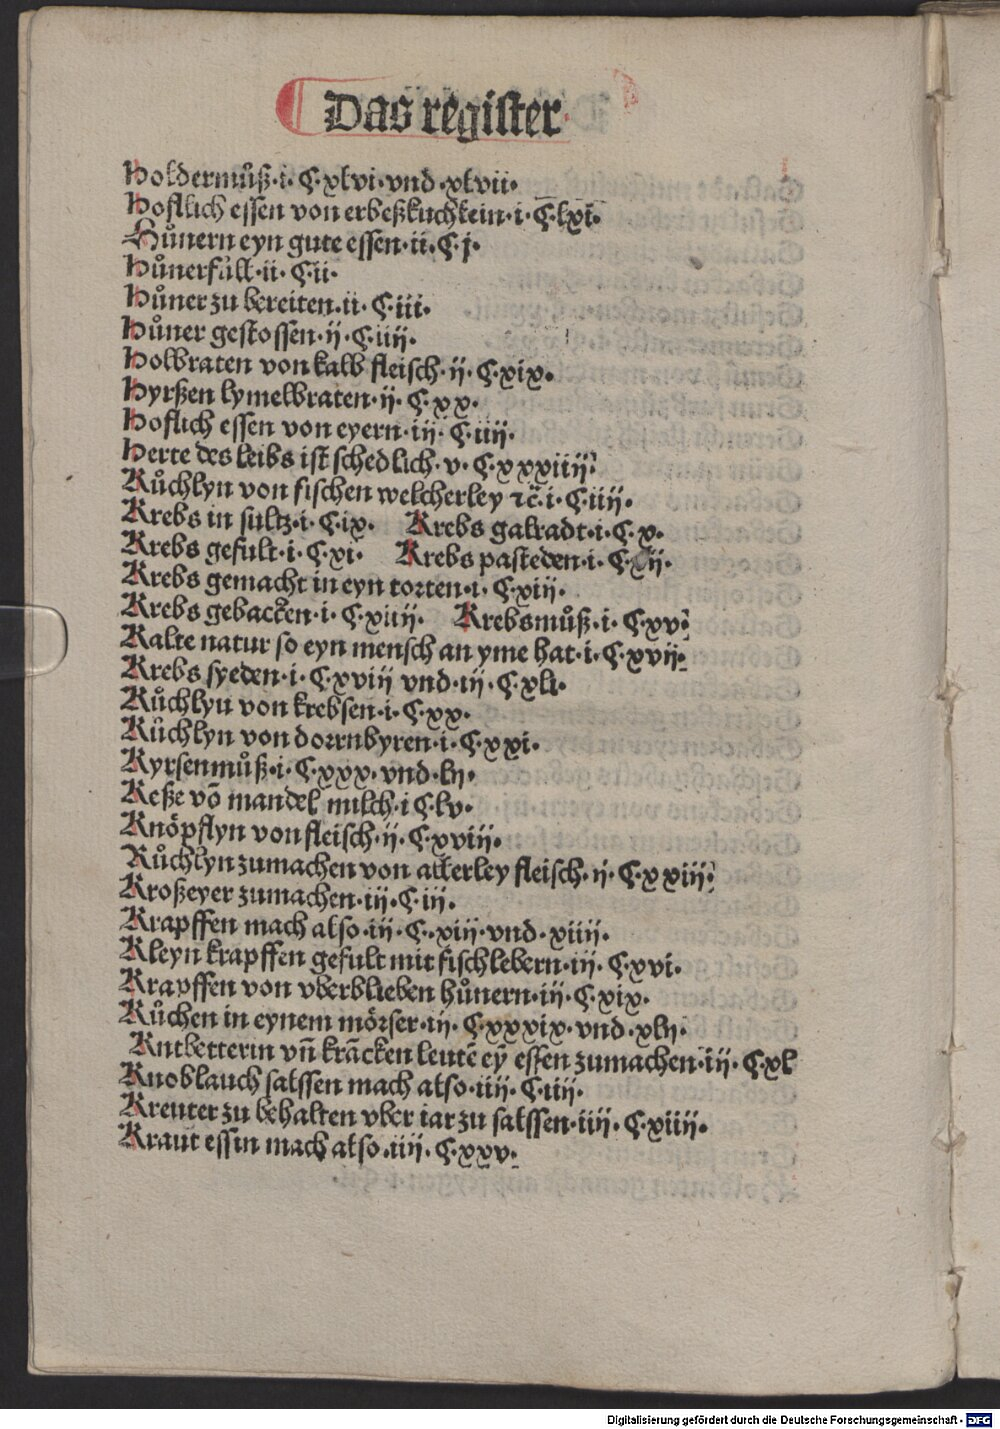 Das register
Holdermůß·i·C·xlvi·vnd·xlvii·
Hoflich essen von erbeßkuchlein·i·C·lxi·
Hůnern eyn gute essen·ii·C·j·
Hůnerfüll·ii·C·ii·
Hůner zu bereiten·ii·C·iii·
Hůner gestossen·ij·C·iiij·
Holbraten von kalb fleisch·ij·C·xix·
Hyrßen lymelbraten·ij·C·xx·
Hoflich essen von eyern·iij·C·iiij·
Herte des leibs ist schedlich·v·C·xxxiiij·
Kůchlyn von fischen welcherley ⁊č·i·C·iiij·
Krebs in sultz·i·C·ix· Krebs galradt·i·C·x·
Krebs gefult·i·C·xi· Krebs pasteden·i·C·xij·
Krebs gemacht in eyn torten·i·C·xiij·
Krebs gebacken·i·C·xiiij· Krebsmůß·i·C·xv·
Kalte natur so eyn mensch an yme hat·i·C·xvij·
Krebs syeden·i·C·xviij vnd·iij·C·xli·
Kůchlyn von krebsen·i·C·xx·
Kůchlyn von dorrnbyren·i·C·xxi·
Kyrsenmůß·i·C·xxx·vnd·lij·
Keße võ mandel milch·i C·lv·
Knöpflyn von fleisch·ij·C·xviij·
Kůchlyn zumachen von allerley fleisch·ij·C·xxiij·
Kroßeyer zumachen·iij·C·iij·
Krapffen mach also·iij·C·xiij·vnd·xiiij·
Kleyn krapffen gefult mit fischlebern·iij·C·xvi·
Krapffen von vberblieben hůnern·iij·C·xix·
Kůchen in eynem mörser·iij·C·xxxix·vnd·xlij·
Kntbetterin vñ krãcken leutẽ eỹ essen zumachen·iij·C·xl
Knoblauch salssen mach also·iiij·C·iiij·
Kreuter zu behalten vber iar zu salssen·iiij·C·xiiij·
Kraut essin mach also·iiij·C·xxv·
Digitalisierung gefördert durch die Deutsche Forschungsgemeinschaft - DFG